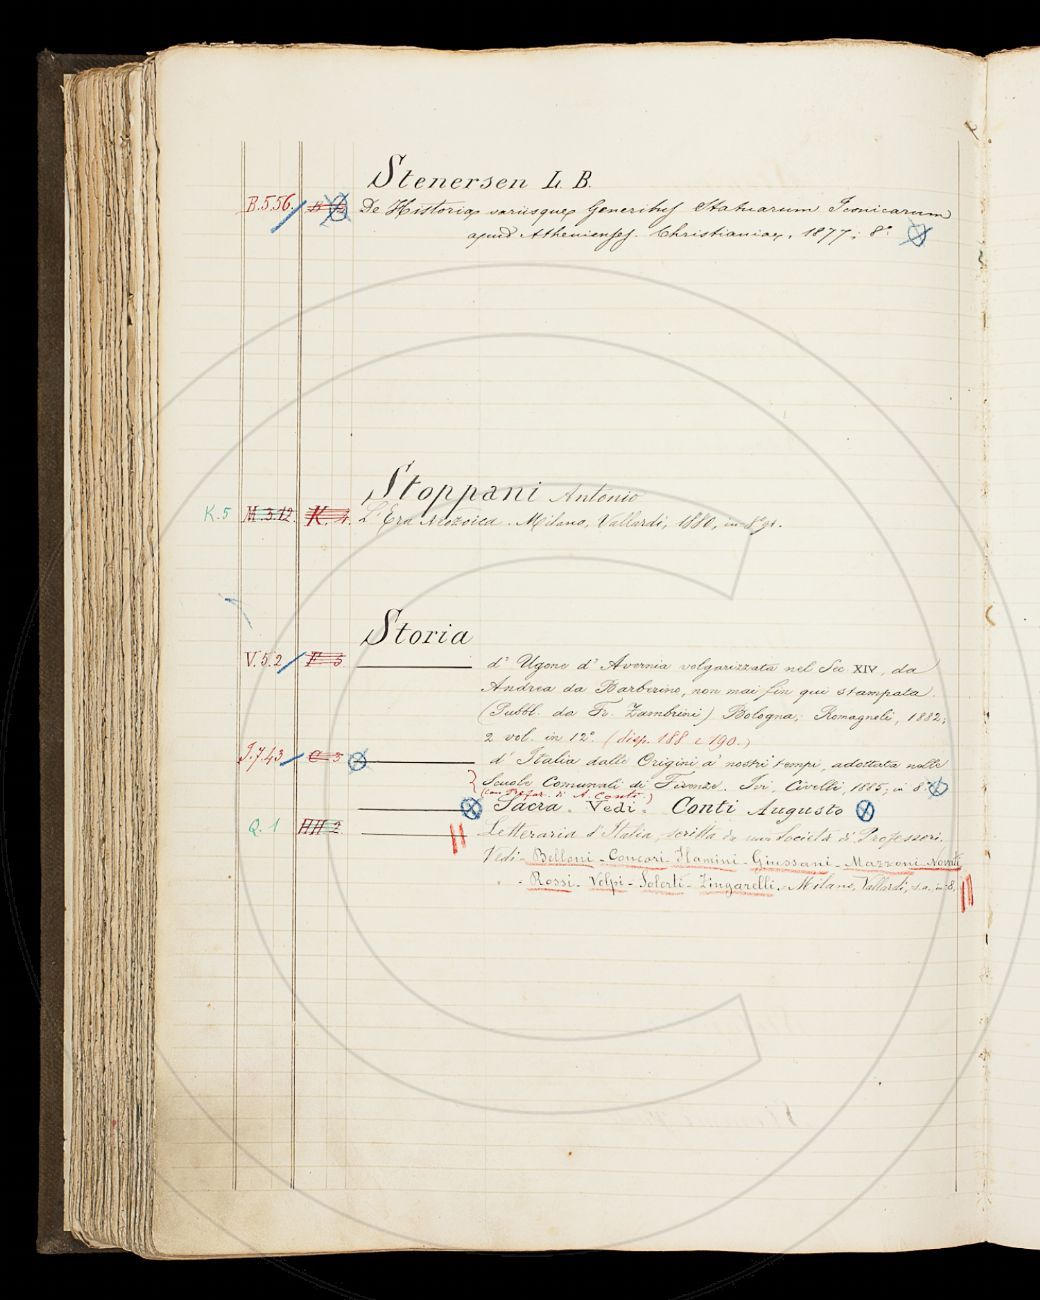 Stenersen L. B.
B.5.56. De Historia variisque Generibus Statuarum Iconicarum
apud Athenienses. Christianiae, 1877; 8°.
Stoppani Antonio
K.5 M.3.12. K. 4. L'Era Neozoica. Milano, Vallardi, 1880, in 8° gr.
Storia
V.5.2 F. 5 d' Ugone d' Avernia volgarizzata nel Sec XIV, da
Andrea da Barberino, non mai fin qui stampata.
(Pubbl. da Fr. Zambrini) Bologna, Romagnoli, 1882;
2 vol. in 12°. (disp. 188 e 190.)
I.7.43 C 5 d' Italia dalle Origini a' nostri tempi, adottata nelle
Scuole Comunali di Firenze. Ivi, Civelli, 1885, in 8°
(con Prefaz. di A. Conti.)
Sacra. Vedi. Conti Augusto
Q. 1 HH 2 Letteraria d'Italia, scritta da una Società di Professori.
Vedi Belloni - Concari - Flamini - Giussani - Mazzoni Novati
- Rossi - Volpi - Solerti - Zingarelli. Milano, Vallardi, s.a., in 8.
C